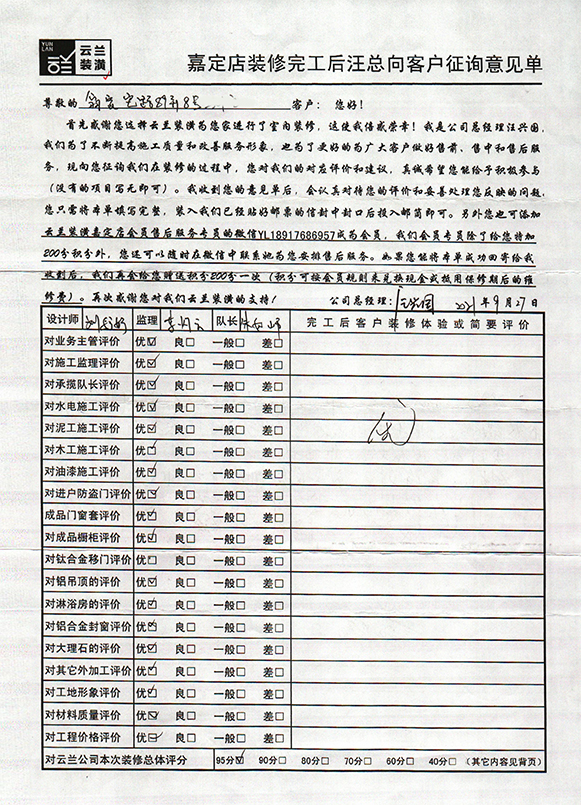 YUN LAN 云兰装潢
嘉定店装修完工后汪总向客户征询意见单
尊敬的 客户: 您好!
首先感谢您选择云兰装潢为您家进行了室内装修,这使我倍感荣幸!我是公司总经理汪兴国,
我们为了不断提高施工质量和改善服务形象,也为了更好的为广大客户做好售前、售中和售后服
务,现向您征询我们在装修的过程中,您对我们的对应评价和建议,真诚希望您能给予积极参与
(没有的项目写无即可)。我收到您的意见单后,会认真对待您的评价和妥善处理您反映的问题,
您只需将本单填写完整,装入我们已经贴好邮票的信封中封口后投入邮筒即可。另外您也可添加
云兰装潢嘉定店会员售后服务专员的微信YL18917686957成为会员,我们会员专员除了给您将加
200分积分外,您还可以随时在微信中联系她为您安排售后服务。如果您能将本单成功回寄给我
收到后,我们再会给您赠送积分200分一次(积分可按会员规则来兑换现金或抵用保修期后的维
修费)。再次感谢您对我们云兰装潢的支持! 公司总经理: 汪兴国 2021年9月27日
设计师 监理 队长 完工后客户装修体验或简要评价
对业务主管评价 优☑ 良□ 一般□ 差□
对施工监理评价 优☑ 良□ 一般□ 差□
对承揽队长评价 优☑ 良□ 一般□ 差□
对水电施工评价 优☑ 良□ 一般□ 差□
对泥工施工评价 优☑ 良□ 一般□ 差□ 优
对木工施工评价 优☑ 良□ 一般□ 差□
对油漆施工评价 优☑ 良□ 一般□ 差□
对进户防盗门评价 优☑ 良□ 一般□ 差□
成品门窗套评价 优☑ 良□ 一般□ 差□
对成品橱柜评价 优☑ 良□ 一般□ 差□
对钛合金移门评价 优☑ 良□ 一般□ 差□
对铝吊顶的评价 优☑ 良□ 一般□ 差□
对淋浴房的评价 优☑ 良□ 一般□ 差□
对铝合金封窗评价 优☑ 良□ 一般□ 差□
对大理石的评价 优☑ 良□ 一般□ 差□
对其它外加工评价 优☑ 良□ 一般□ 差□
对工地形象评价 优☑ 良□ 一般□ 差□
对材料质量评价 优☑ 良□ 一般□ 差□
对工程价格评价 优☑ 良□ 一般□ 差□
对云兰公司本次装修总体评分 95分☑ 90分□ 80分□ 70分□ 60分□ 40分□ (其它内容见背页)